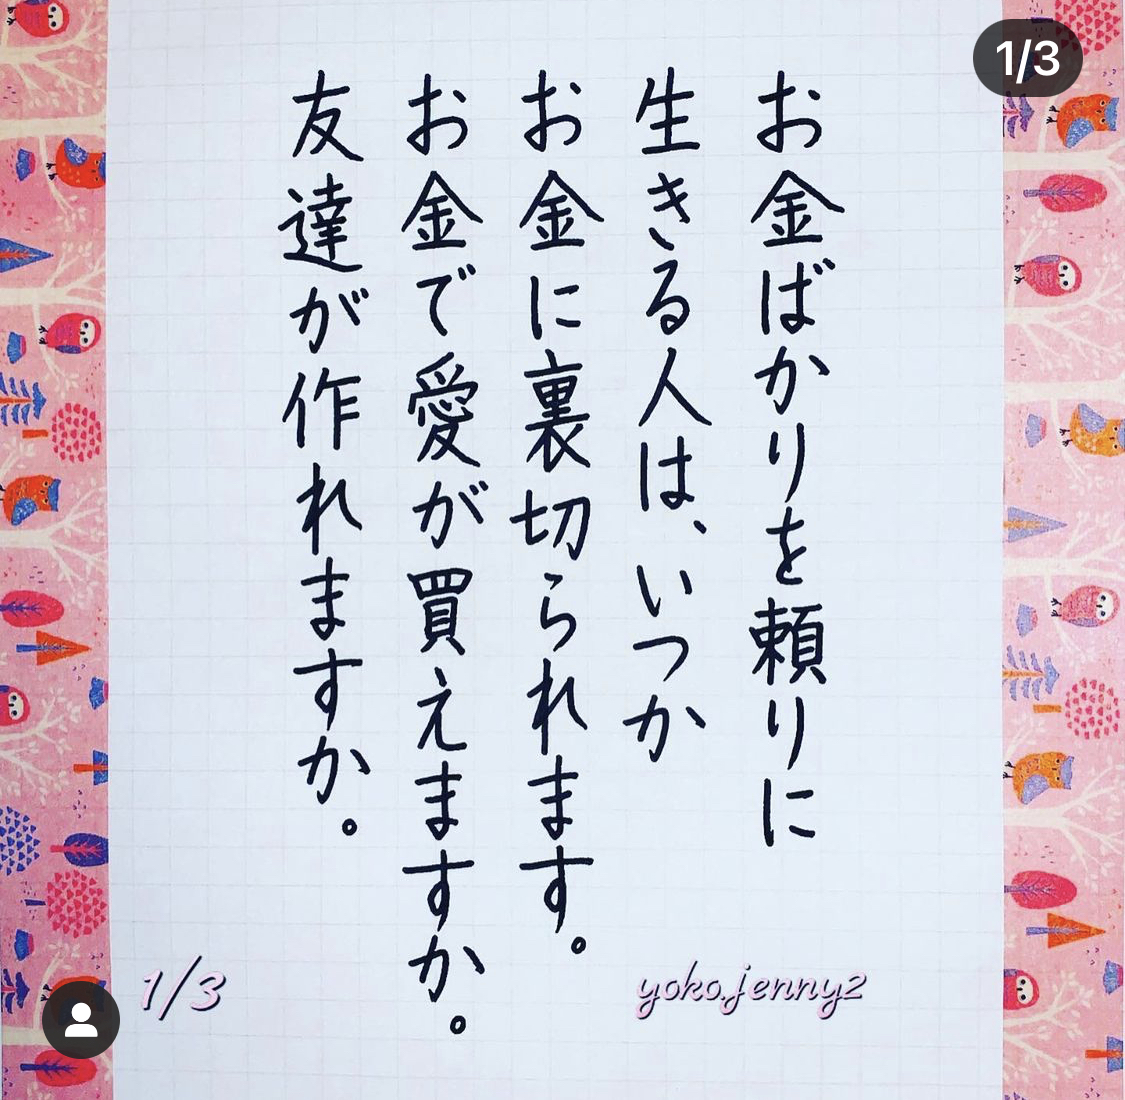 1/3
お金ばかりを頼りに
生きる人は、いつか
お金に裏切られます。
お金で愛が買えますか。
友達が作れますか。
1/3
yoko.jenny2